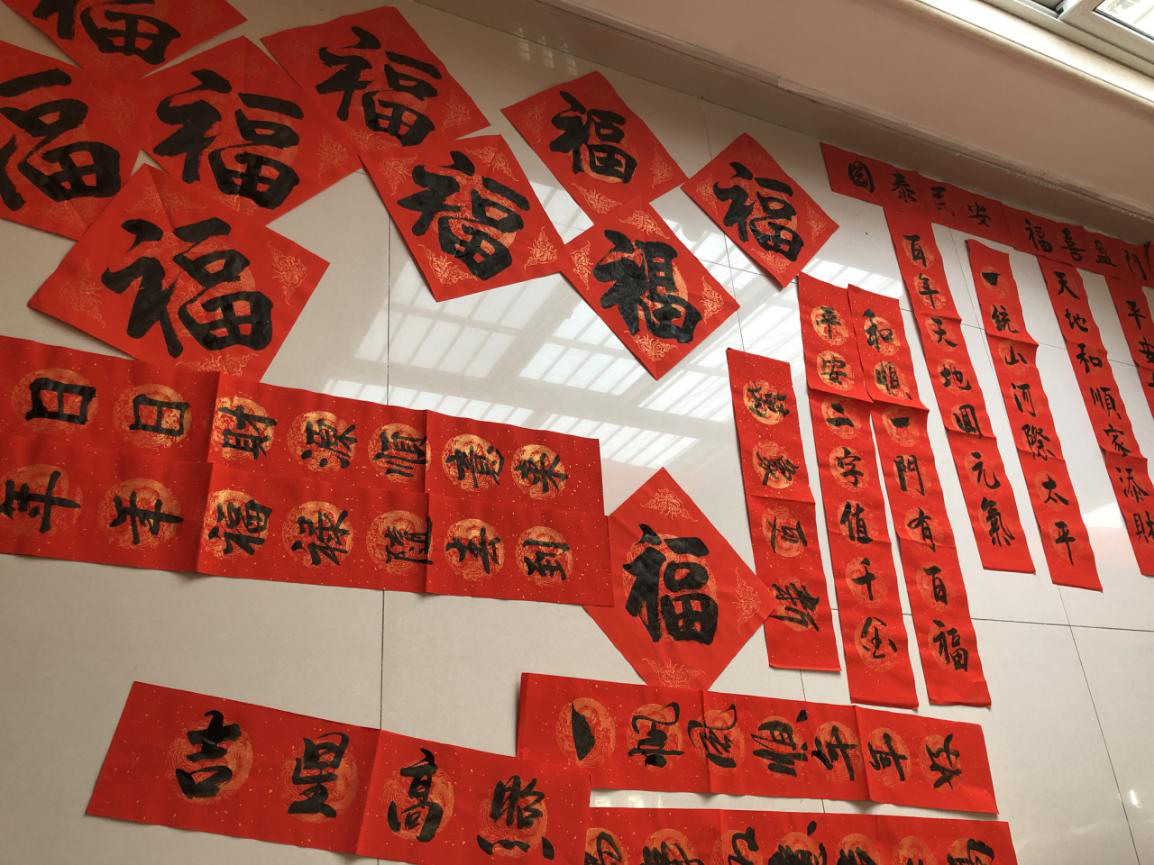 福
福
福
福
福
福
福
福
福
福
國泰民安
福喜盈門
百年天地回元氣
一統山河際太平
天地和順家添財
平安
和順一門有百福
平安二字值千金
萬象更新
日日財源順意來
年年福祿隨春到
吉星高照
一帆風順年年好